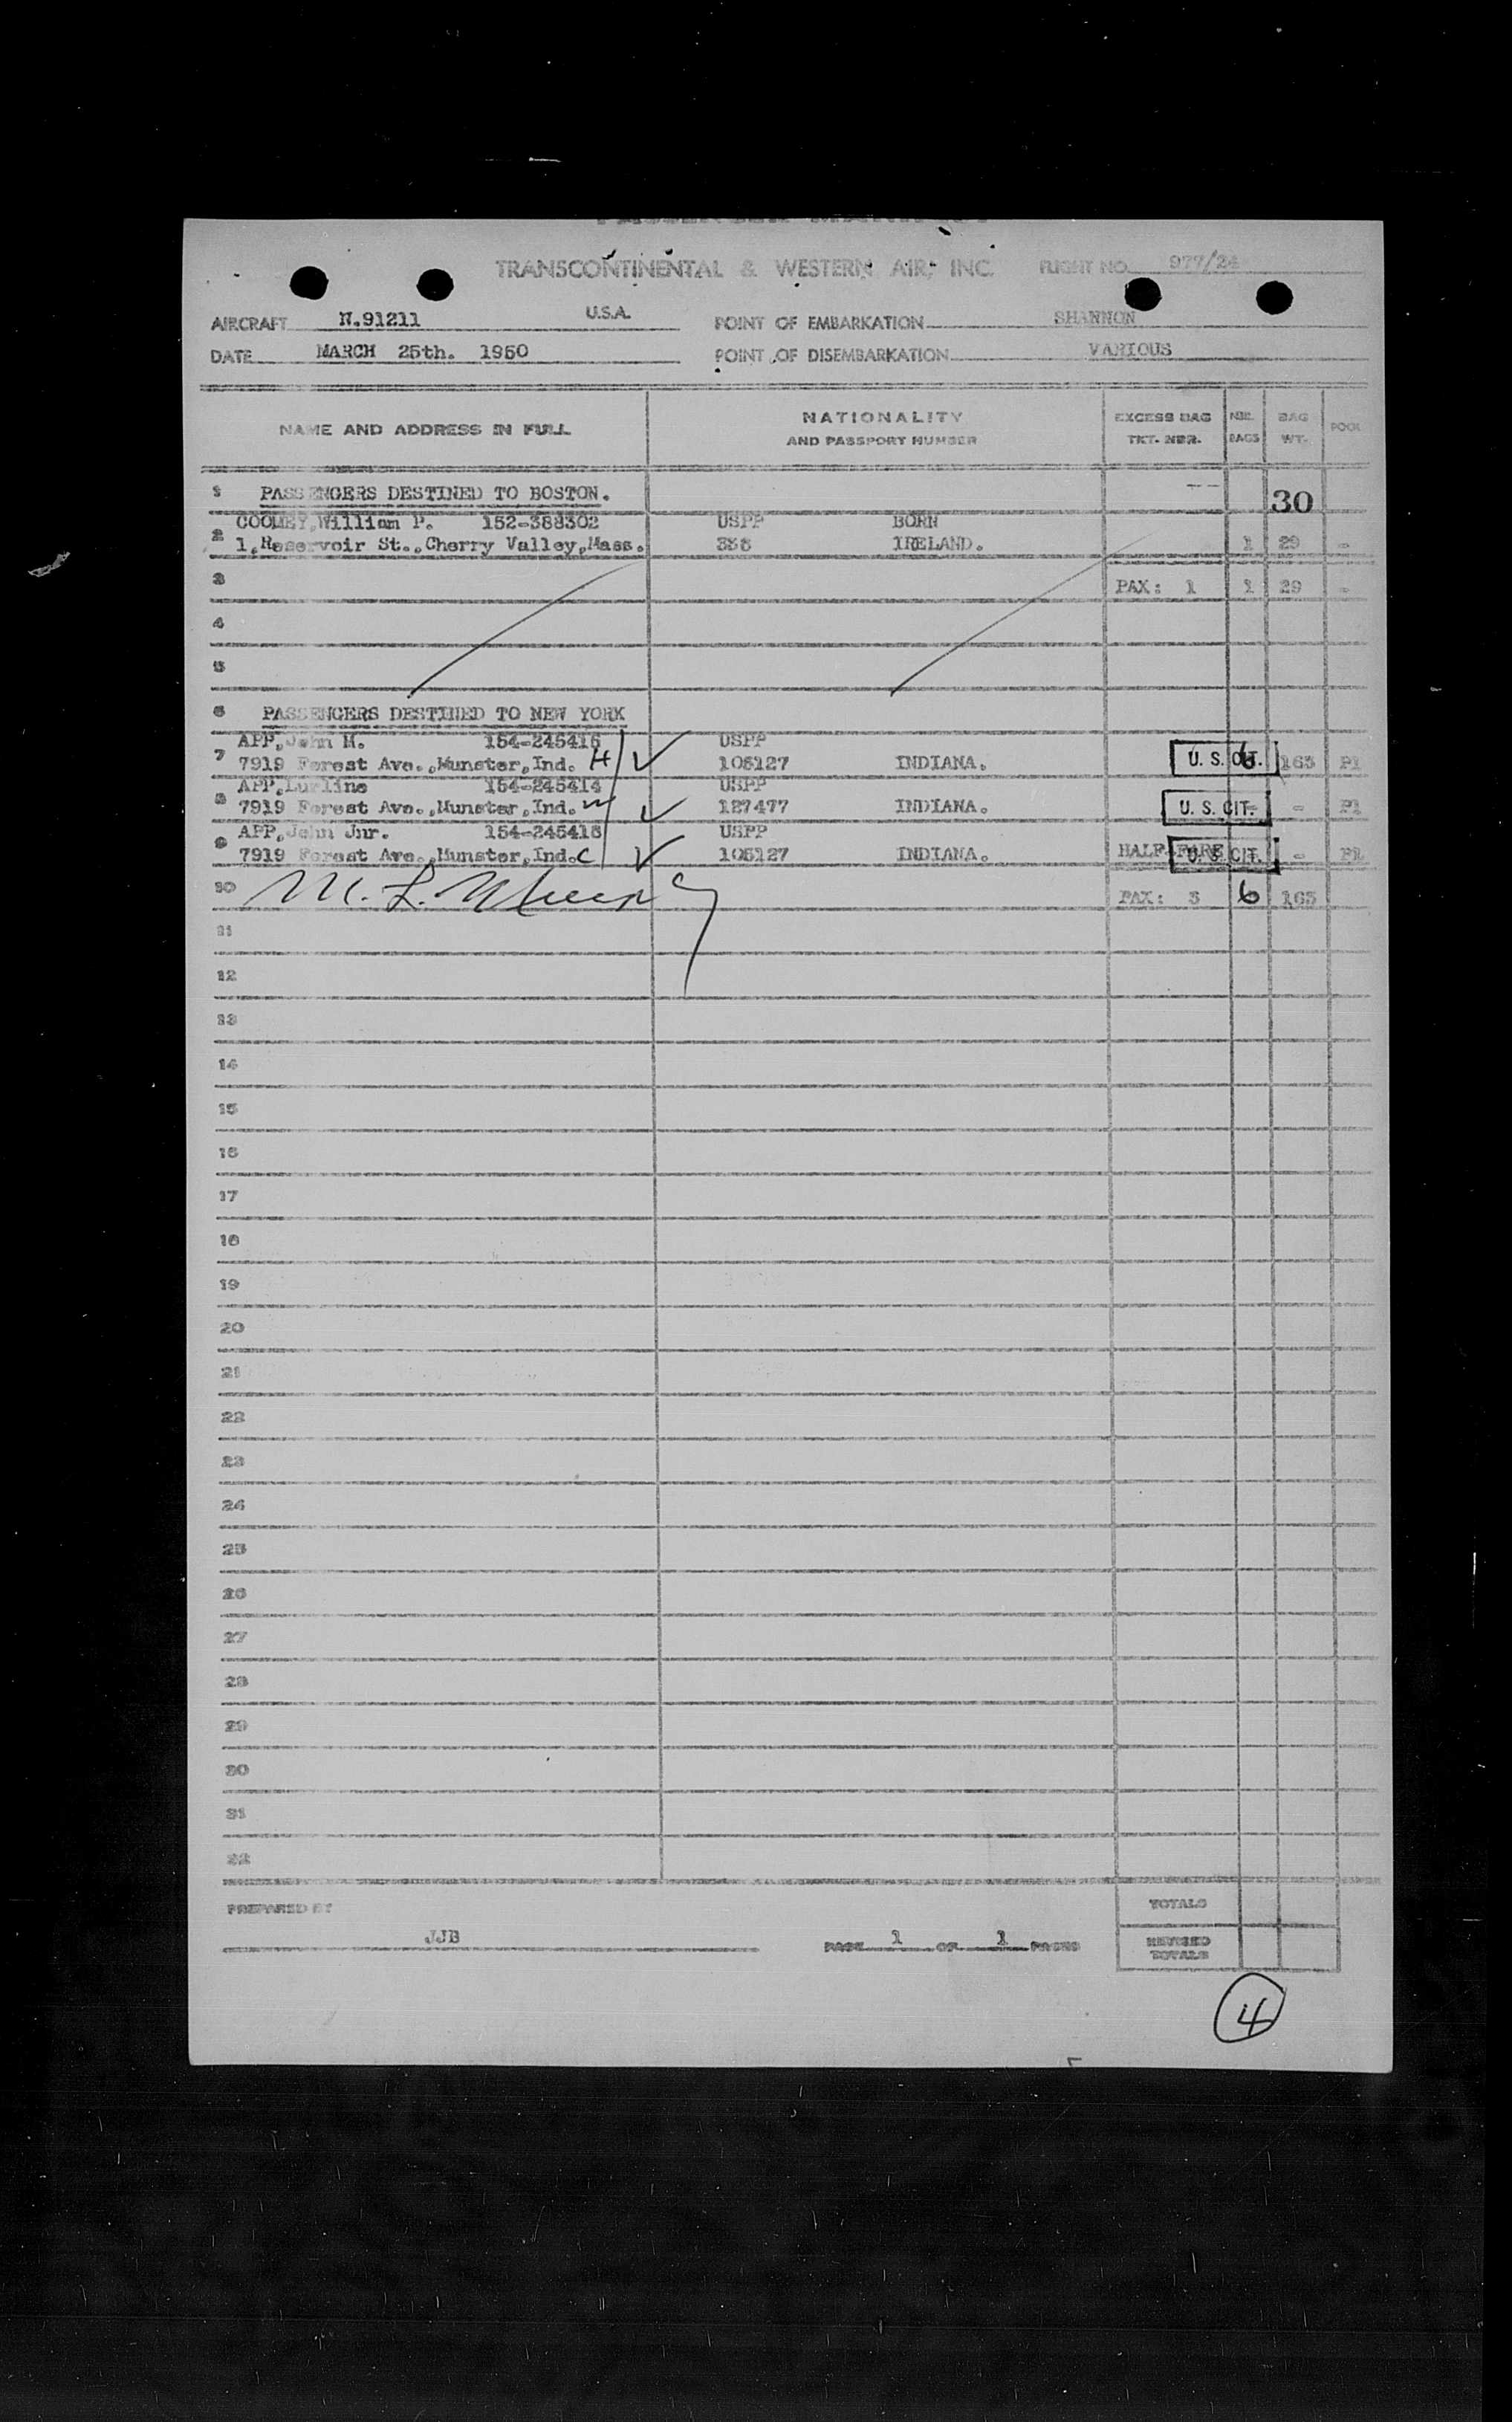 TRANSCONTINENTAL & WESTERN AIR, INC. FLIGHT NO. 977/24
AIRCRAFT N.91211 U.S.A. POINT OF EMBARKATION SHANNON
DATE MARCH 25th. 1950 POINT OF DISEMBARKATION VARIOUS
NAME AND ADDRESS IN FULL NATIONALITY AND PASSPORT NUMBER EXCESS BAG TKT. NBR. NBR. BAGS BAG WT. POOL
1 PASSENGERS DESTINED TO BOSTON. -- 30
William P. 152-388302 USPP BORN
2 1,Reservoir St.,Cherry Valley,Mass. IRELAND. 1 29 -
3 PAX: 1 1 29 -
4
5
6 PASSENGERS DESTINED TO NEW YORK
APP,John M. USPP
7 7919 Forest Ave.,Munster,Ind. H ✓ 105127 INDIANA. U. S. CIT. 6 163 P1
APP,Lurline 154-245414 USPP
8 7919 Forest Ave.,Munster,Ind. W ✓ 127477 INDIANA. U. S. CIT. - - P1
APP,John Jnr. USPP
9 7919 Forest Ave.,Munster,Ind. C ✓ 105127 INDIANA. HALF-FARE U. S. CIT. - P1
10 M. L. PAX: 3 6 163
11
12
13
14
15
16
17
18
19
20
21
22
23
24
25
26
27
28
29
30
31
32
PREPARED BY TOTALS
JJB PAGE 1 OF 1 PAGES REVISED TOTALS
4